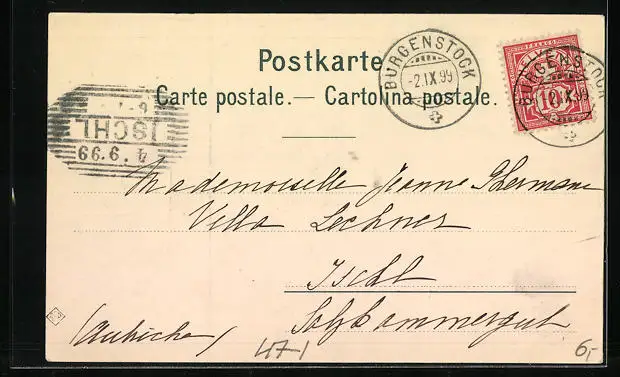 Postkarte
Carte postale. — Cartolina postale.
BÜRGENSTOCK
-2.IX.99
FRANCO
10
BÜRGENSTOCK
-2.IX.99
ISCHL
4.9.99
Mademoiselle Jeanne
Villa Lechner
Ischl
Salzkammergut
(Autriche)
471
6,-